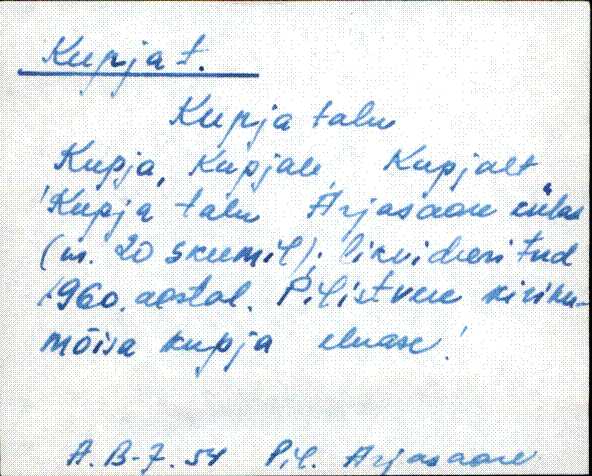 Kupja t.
Kupja talu
Kupja, Kupjale, Kupjalt
'Kupja talu Arjasaare külas
(nr. 20 skeemil); likvideeritud
1960. aastal. Pilistvere kiriku-
mõisa kupja eluase.'
A. B-7. 54 Pil. Arjasaare